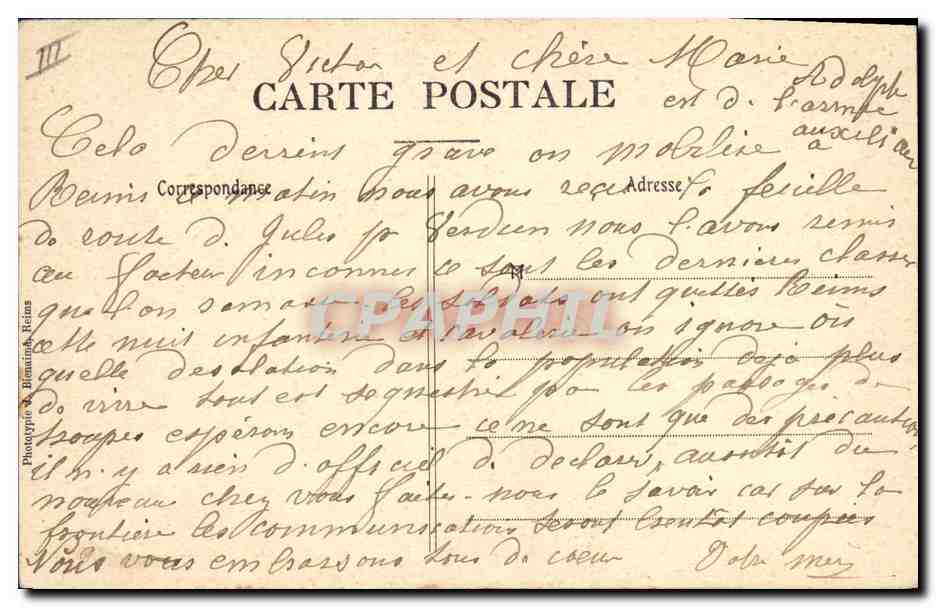 III
Cher Victor et chère Marie
CARTE POSTALE
Adolphe
est d. l'armée
auxiliaire
Cela devient grave on mobilise à
Correspondance
Adresse
Reims ce matin nous avons reçu la feuille
de route d. Jules pr Verdun nous l'avons remis
au facteur inconnu ce sont les dernières classes
M
que l'on remarque les soldats ont quittés Reims
CPAPHIL
cette nuit infanterie et cavalerie on ignore où
quelle désolation dans la population déjà plus
de vivre tout est séquestré par les passages de
troupes espérons encore ce ne sont que des précautions
il n'y a rien d'officiel d. déclarer, aussitôt du
nouveau chez vous faites-nous le savoir car sur la
frontière les communications seront bientôt coupées
Nous vous embrassons tous de coeur Votre mère
Phototypie J. Bienaimé, Reims